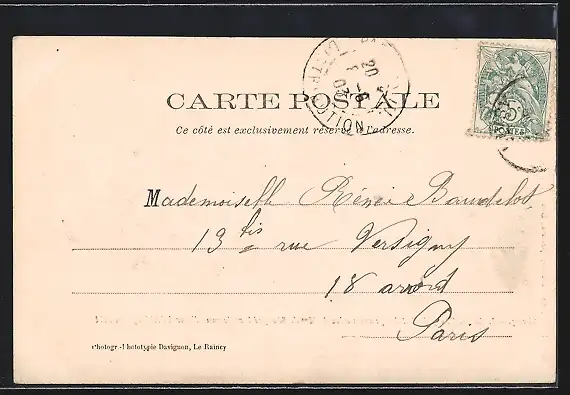 CARTE POSTALE
Ce côté est exclusivement réservé à l'adresse.
Mademoiselle Rénée Baudelot
13 bis rue Versigny
18 arrond
Paris
Photogr.-Phototypie Davignon, Le Raincy
5c
POSTES
20
6
03